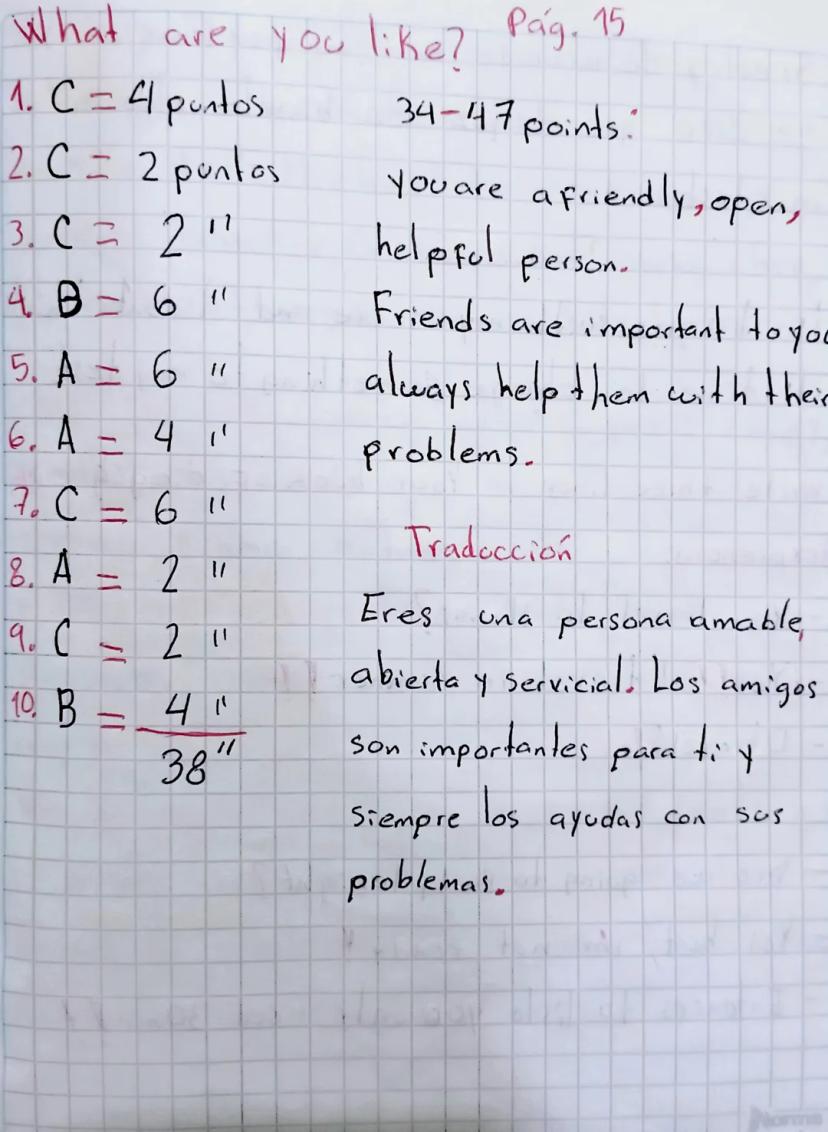 What are you like? Pág. 15
1. C = 4 puntos
2. C = 2 puntos
3. C = 2 "
4. B = 6 "
5. A = 6 "
6. A = 4 "
7. C = 6 "
8. A = 2 "
9. C = 2 "
10. B = 4 "
38"
34-47 points:
you are a friendly, open,
helpful person.
Friends are important to you
always help them with their
problems.
Traducción
Eres una persona amable,
abierta y servicial. Los amigos
son importantes para ti y
siempre los ayudas con sus
problemas.
Norma